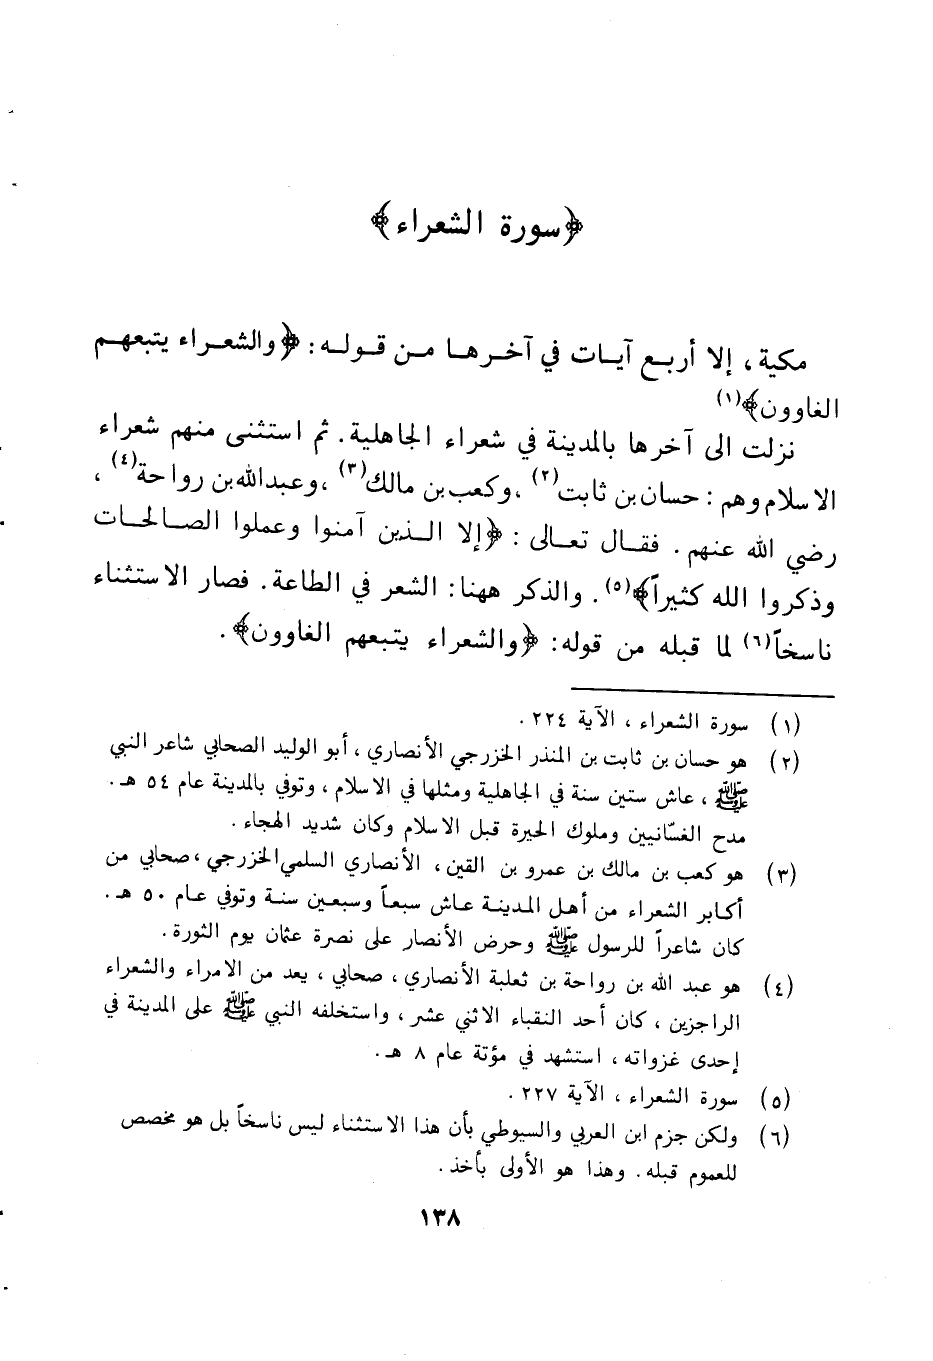 ﴿سورة الشعراء﴾
مكية ، إلا أربع آيات في آخرها من قوله : ﴿والشعراء يتبعهم
الغاوون﴾(١)
نزلت الى آخرها بالمدينة في شعراء الجاهلية . ثم استثنى منهم شعراء
الاسلام وهم : حسان بن ثابت(٢) ، وكعب بن مالك(٣) ، وعبدالله بن رواحة(٤) ،
رضي الله عنهم . فقال تعالى : ﴿إلا الذين آمنوا وعملوا الصالحات
وذكروا الله كثيراً﴾(٥) . والذكر ههنا : الشعر في الطاعة . فصار الاستثناء
ناسخاً(٦) لما قبله من قوله : ﴿والشعراء يتبعهم الغاوون﴾ .
(١) سورة الشعراء ، الآية ٢٢٤ .
(٢) هو حسان بن ثابت بن المنذر الخزرجي الأنصاري ، أبو الوليد الصحابي شاعر النبي
ﷺ ، عاش ستين سنة في الجاهلية ومثلها في الاسلام ، وتوفي بالمدينة عام ٥٤ هـ .
مدح الغسّانيين وملوك الحيرة قبل الاسلام وكان شديد الهجاء .
(٣) هو كعب بن مالك بن عمرو بن القين ، الأنصاري السلمي الخزرجي ، صحابي من
أكابر الشعراء من أهل المدينة عاش سبعاً وسبعين سنة وتوفي عام ٥٠ هـ .
كان شاعراً للرسول ﷺ وحرض الأنصار على نصرة عثمان يوم الثورة .
(٤) هو عبد الله بن رواحة بن ثعلبة الأنصاري ، صحابي ، يعد من الامراء والشعراء
الراجزين ، كان أحد النقباء الاثني عشر ، واستخلفه النبي ﷺ على المدينة في
إحدى غزواته ، استشهد في مؤتة عام ٨ هـ .
(٥) سورة الشعراء ، الآية ٢٢٧ .
(٦) ولكن جزم ابن العربي والسيوطي بأن هذا الاستثناء ليس ناسخاً بل هو مخصص
للعموم قبله . وهذا هو الأولى بأخذ .
١٣٨